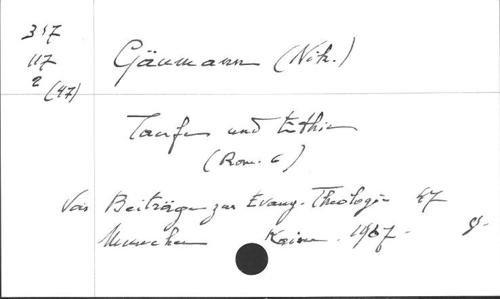 317
117
2 (47)
Gäumann (Nik.)
Taufe und Ethik
(Rom. 6)
Voir Beiträge zur Evang. Theologie 47
Munchen Kaiser. 1967.